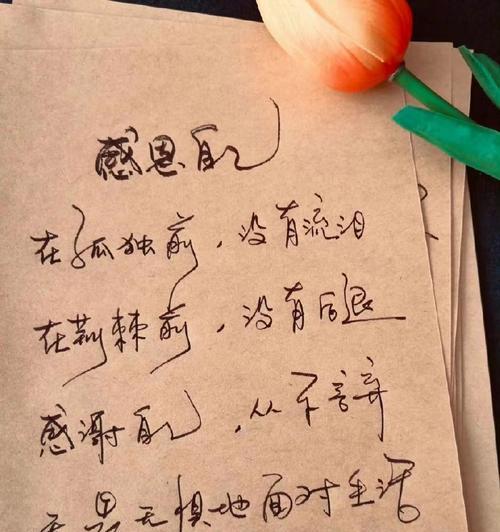 感恩自己
在孤独前，没有流泪
在荆棘前，没有后退
感谢自己，从不言弃
无畏无惧地面对生活